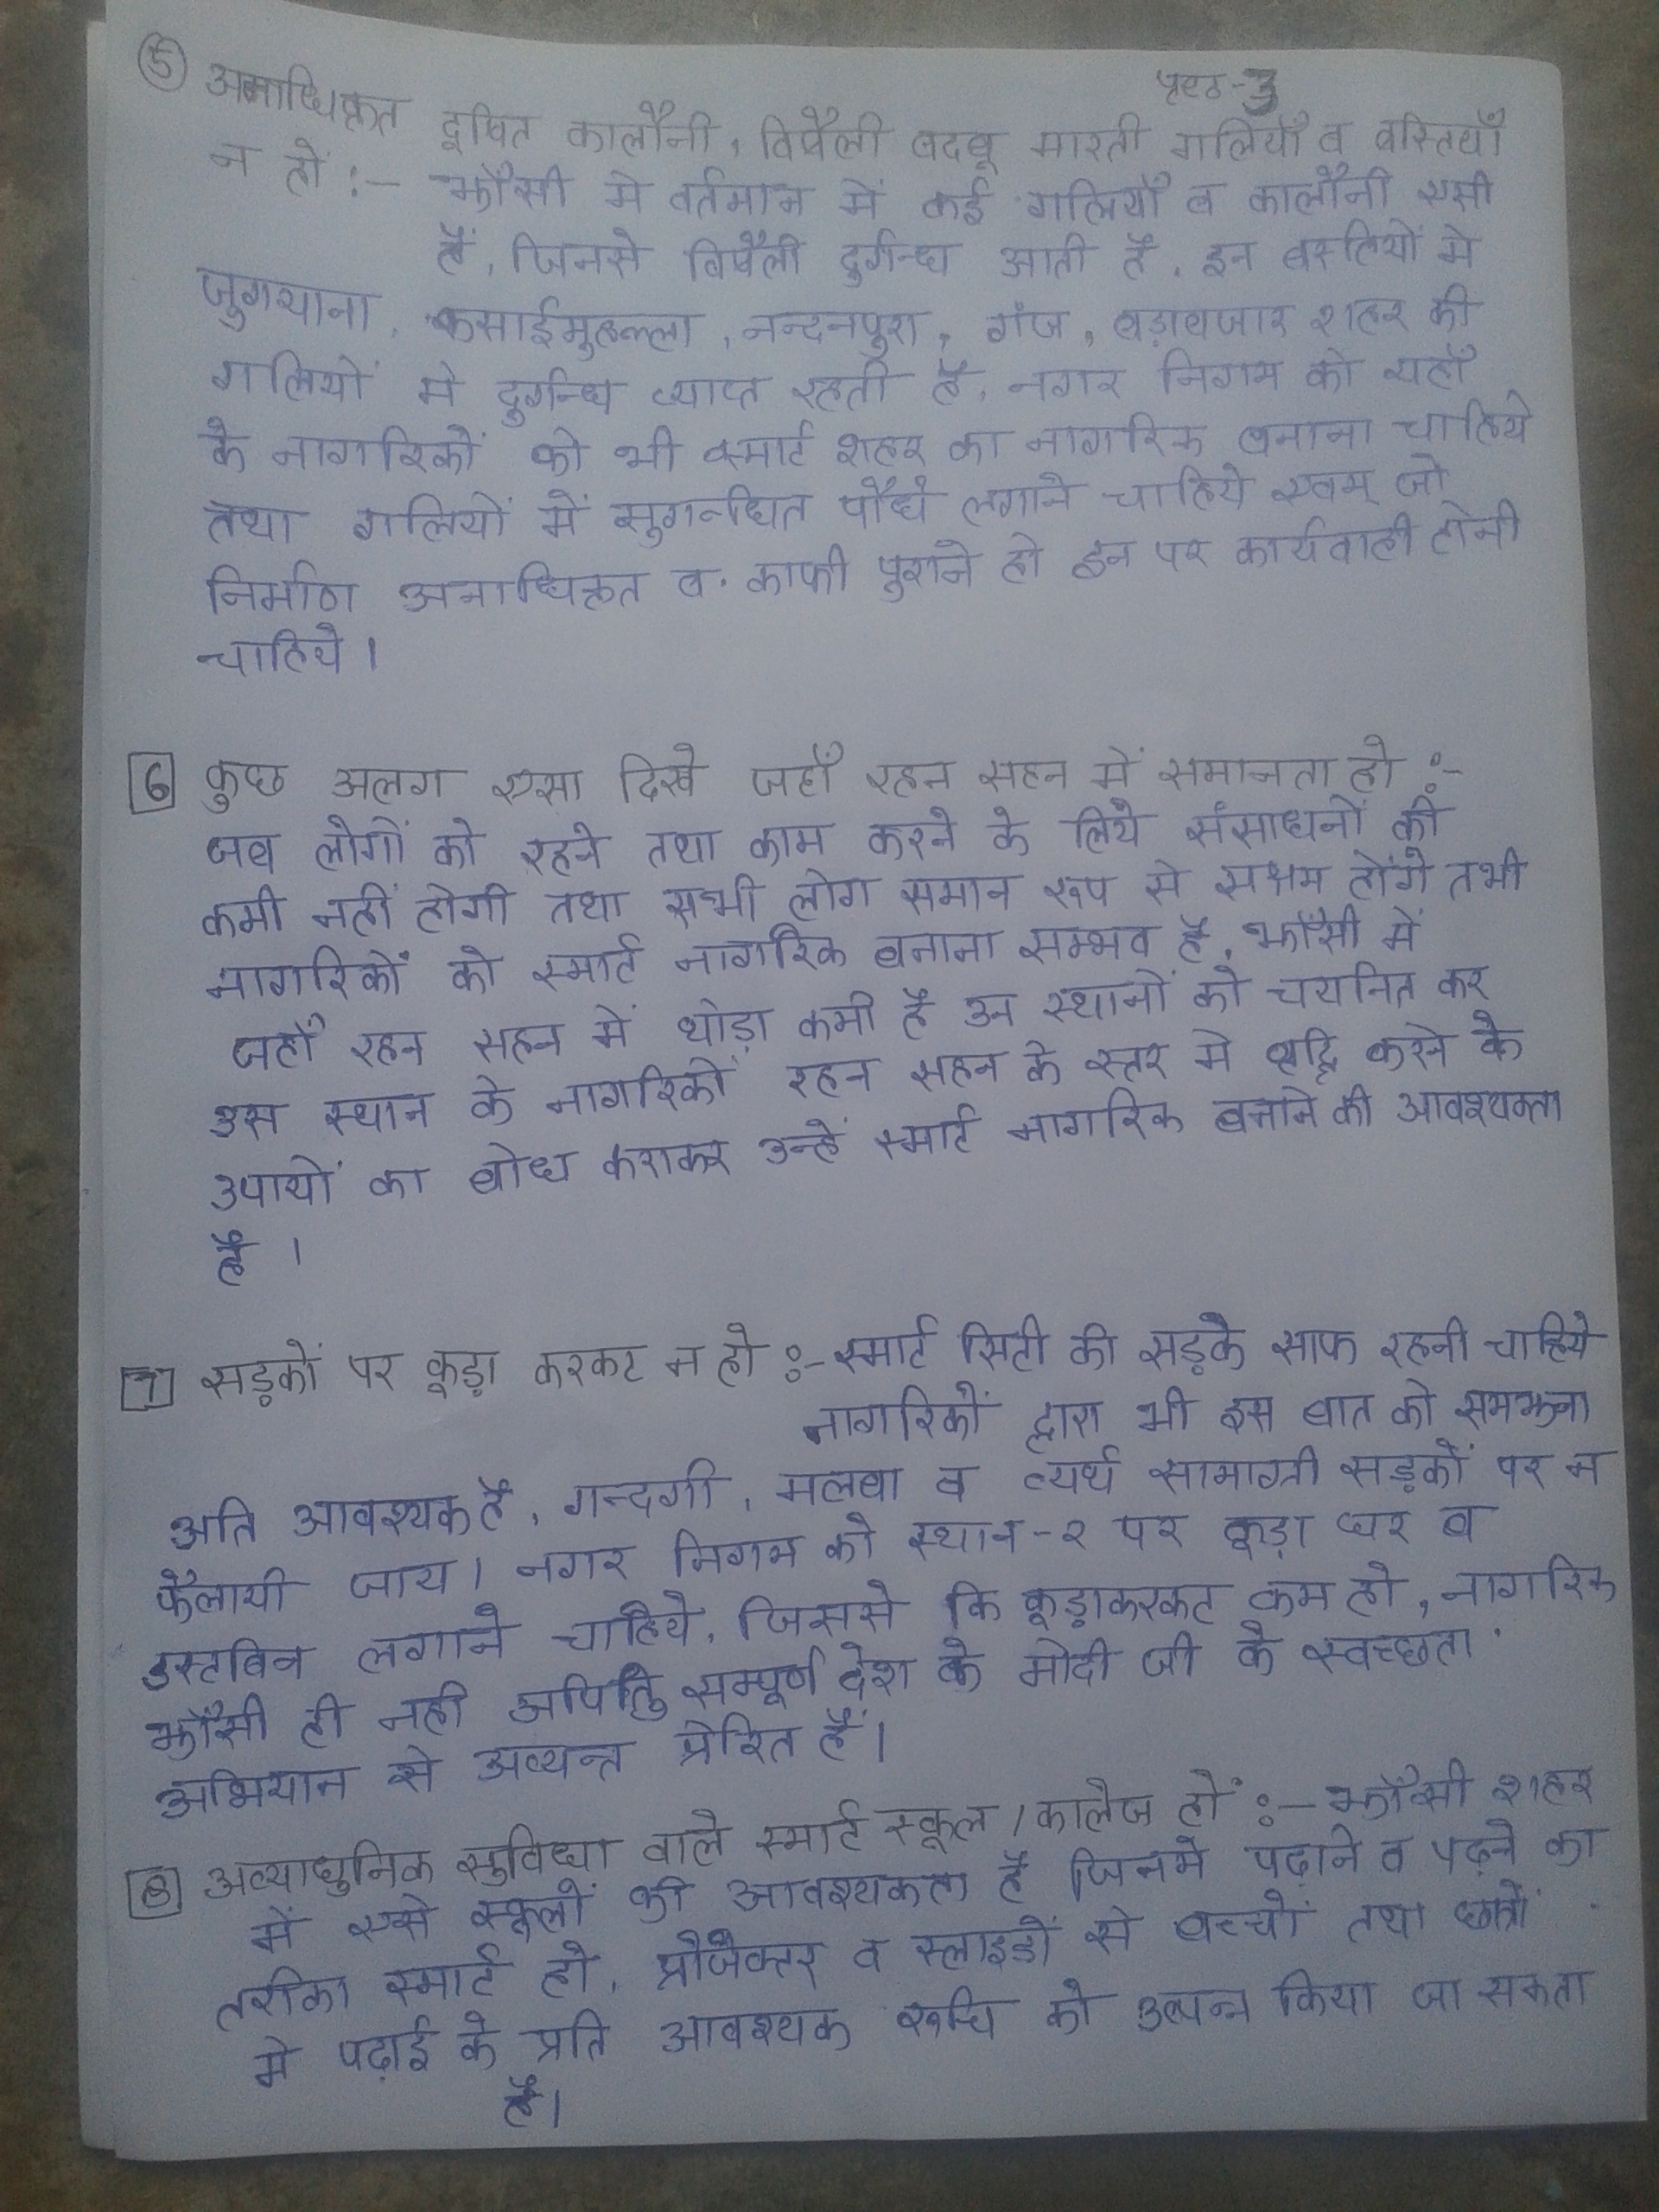 पृष्ठ-3
⑤ अनाधिकृत दूषित कालौनी, विषैली बदबू मारती गलियाँ व बस्तियाँ
न हों :- झाँसी मे वर्तमान में कई गलियाँ व कालौनी एसी
हैं, जिनसे विषैली दुर्गन्ध आती है, इन बस्तियों मे
जुगयाना, कसाईमुहल्ला, नन्दनपुरा, गंज, बड़ाबजार शहर की
गलियों मे दुर्गन्ध व्याप्त रहती है, नगर निगम को यहाँ
के नागरिकों को भी स्मार्ट शहर का नागरिक बनाना चाहिये
तथा गलियों में सुगन्धित पौधे लगाने चाहिये एवम् जो
निर्माण अनाधिकृत व काफी पुराने हो इन पर कार्यवाही होनी
चाहिये।
6 कुछ अलग एसा दिखे जहाँ रहन सहन में समानता हो :-
जब लोगों को रहने तथा काम करने के लिये संसाधनों की
कमी नहीं होगी तथा सभी लोग समान रूप से सक्षम होंगे तभी
नागरिकों को स्मार्ट नागरिक बनाना सम्भव है, झाँसी में
जहाँ रहन सहन में थोड़ा कमी है उन स्थानों को चयनित कर
उस स्थान के नागरिकों रहन सहन के स्तर मे बृद्दि करने के
उपायों का बोध कराकर उन्हें स्मार्ट नागरिक बनाने की आवश्यक्ता
है।
7 सड़कों पर कूड़ा करकट न हो :- स्मार्ट सिटी की सड़के साफ रहनी चाहिये
नागरिकों द्वारा भी इस बात को समझना
अति आवश्यक है, गन्दगी, मलबा व व्यर्थ सामाग्री सड़कों पर न
फैलायी जाय। नगर निगम को स्थान-२ पर कूड़ा घर व
डस्टबिन लगाने चाहिये, जिससे कि कूड़ाकरकट कम हो, नागरिक
झाँसी ही नही अपितु सम्पूर्ण देश के मोदी जी के स्वच्छता
अभियान से अत्यन्त प्रेरित हैं।
8 अत्याधुनिक सुविधा वाले स्मार्ट स्कूल / कालेज हों :- झाँसी शहर
में एसे स्कूलों की आवश्यकता है जिनमे पढ़ाने व पढ़ने का
तरीका स्मार्ट हो, प्रौजेक्टर व स्लाइडों से बच्चों तथा छात्रों
मे पढ़ाई के प्रति आवश्यक रूचि को उत्पन्न किया जा सकता
है।